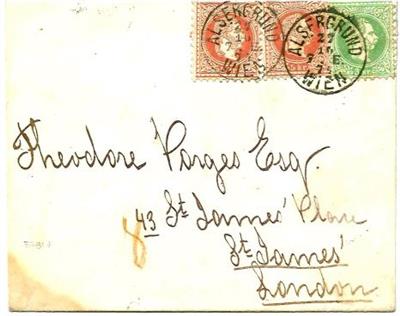 ALSERGRUND
WIEN
ALSERGRUND
WIEN
Theodore Porges Esq.
43 St James' Place
St James'
London